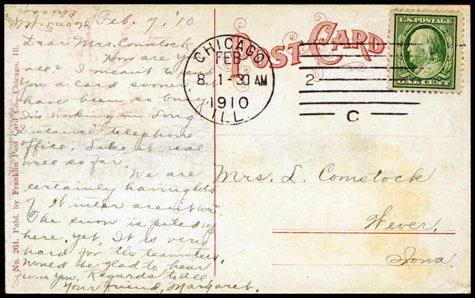 Feb. 7, '10
Dear Mrs. Comstock
How are you
all? I meant to
you a card sooner
have been so busy.
I'm working in Long
Distance telephone
office. Like it real
well so far.
We are
certainly having lots
of it
The snow is piled up
here, yet. It is very
hard for the teamsters.
Would be glad to hear
from you. Regards to all
Your friend, Margaret.
No. 261. Publ. by Franklin Post Card Co., Chicago, Ill.
POST CARD
CHICAGO
FEB
8 1-30 AM
1910
ILL.
2
C
U.S. POSTAGE
ONE CENT
Mrs. L. Comstock
Wever,
Iowa.